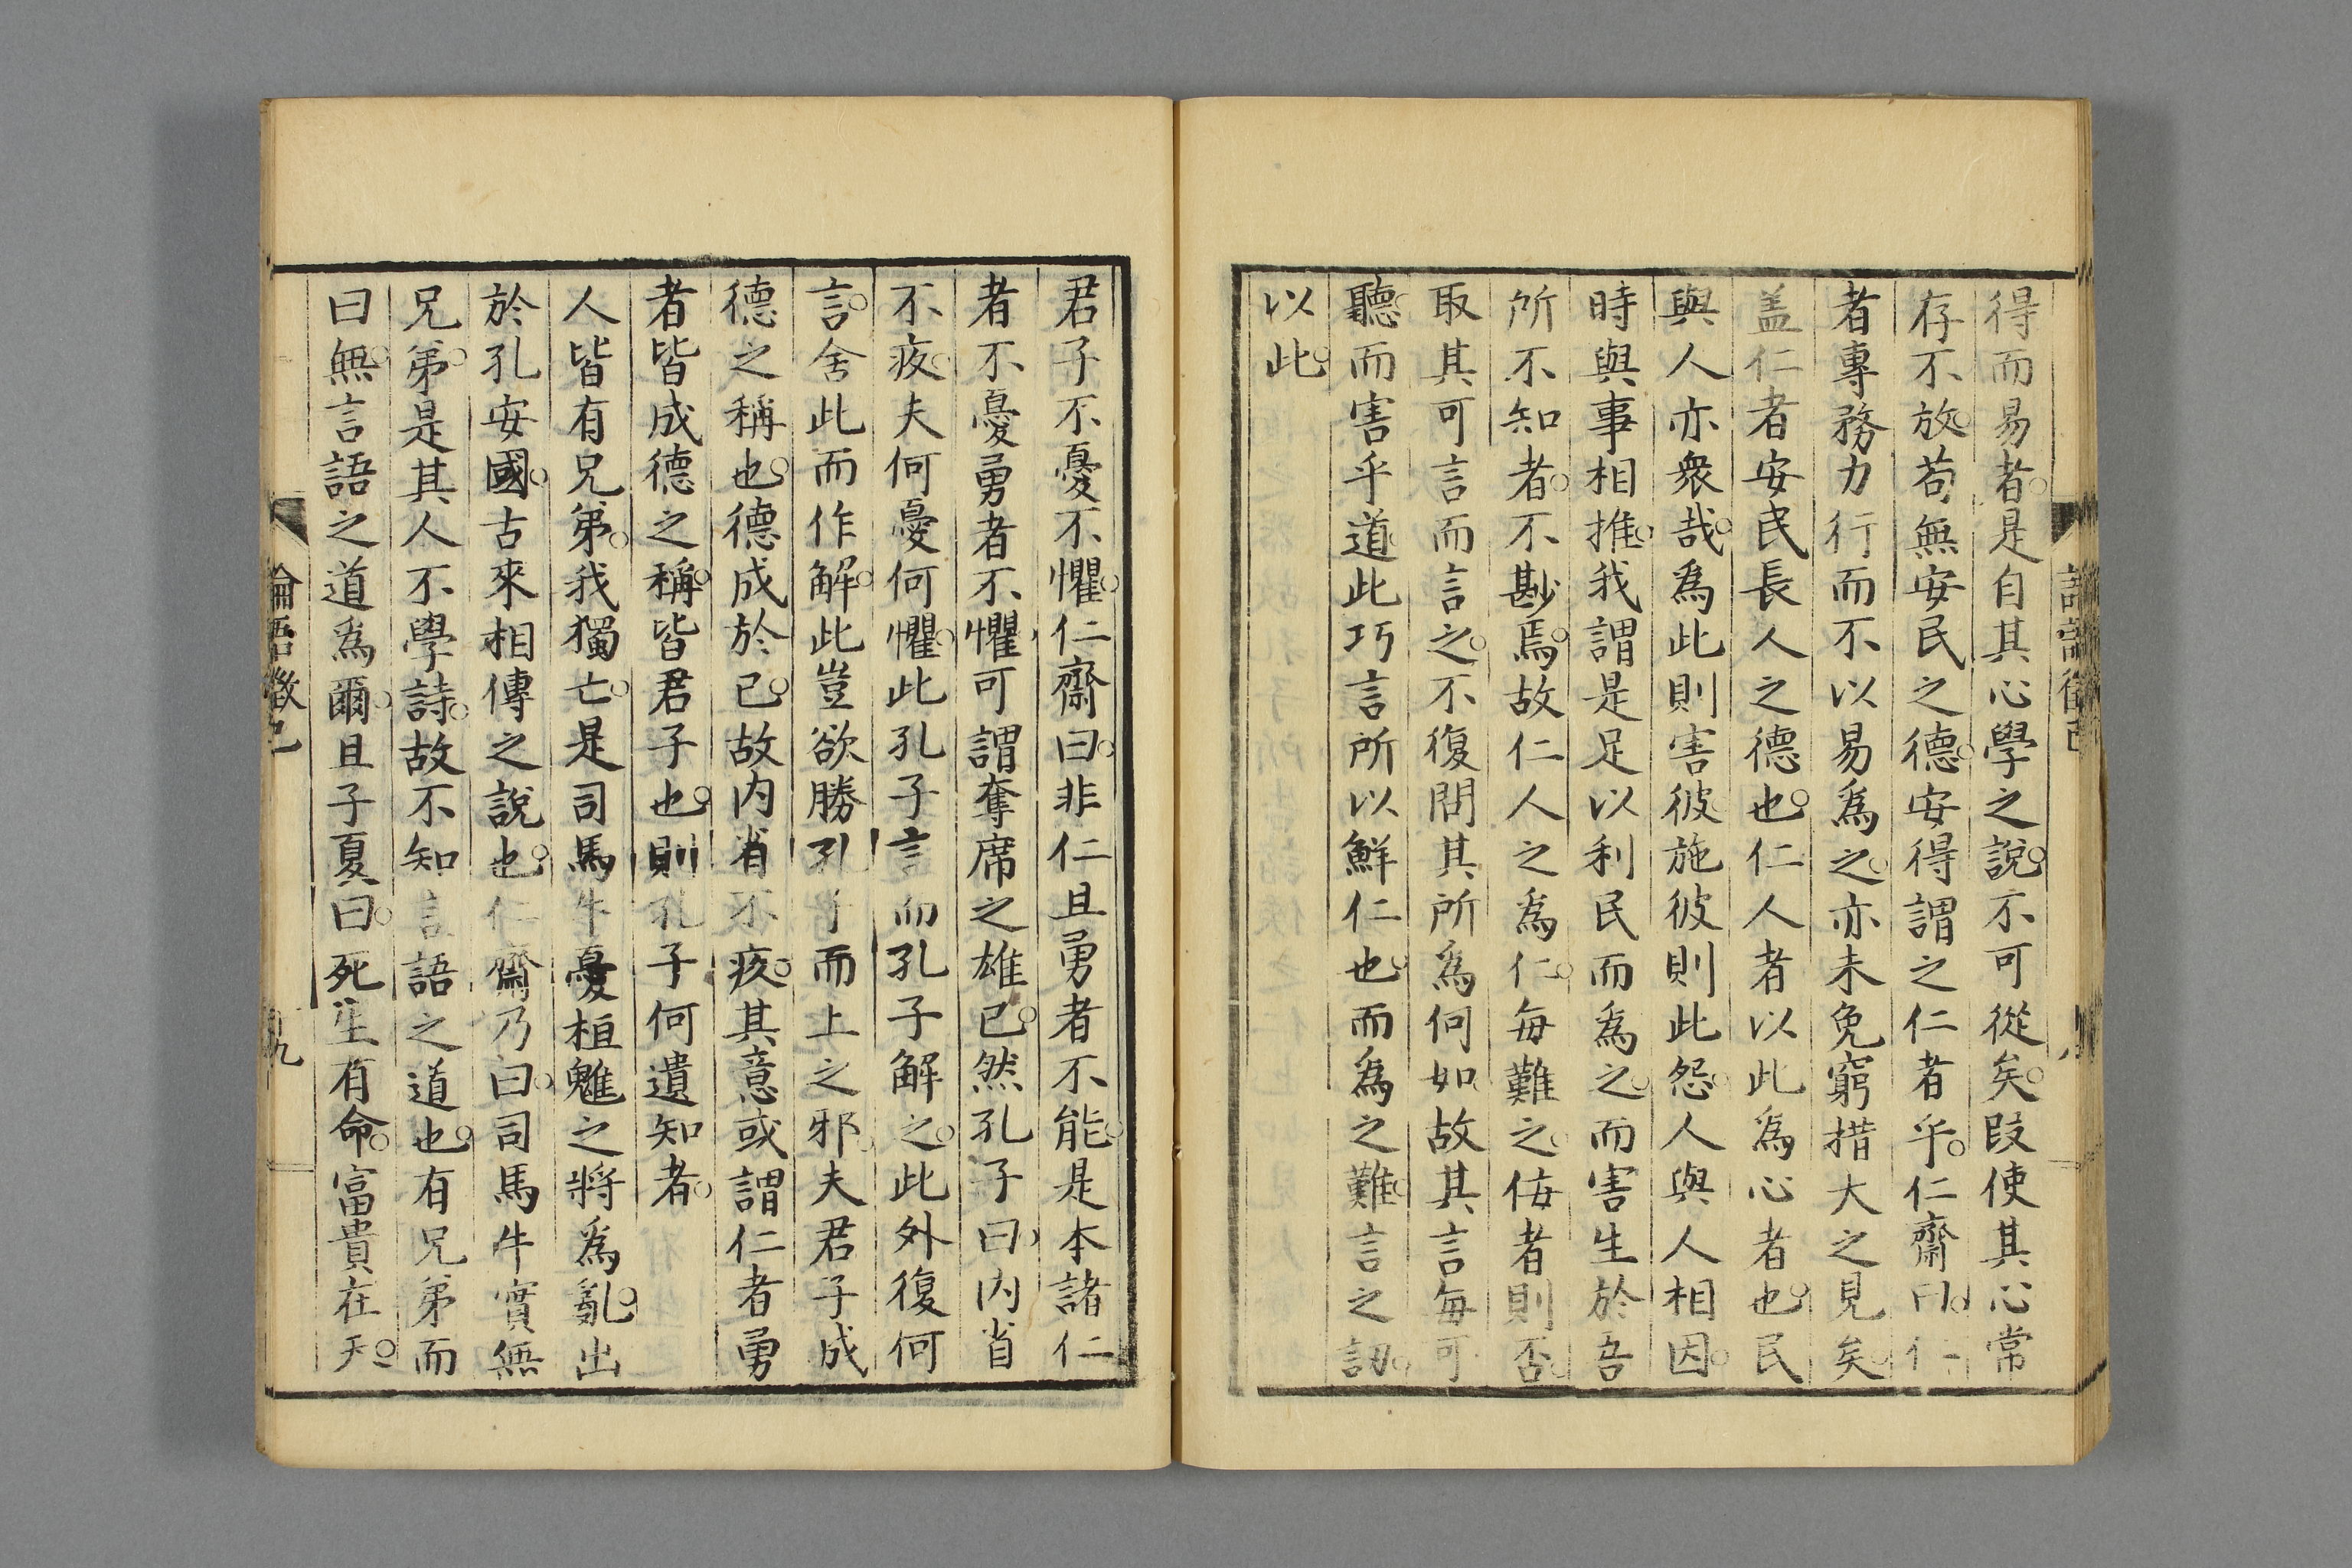 得而易者是自其心學之說不可從矣段使其心常
存不放苟無安民之德安得謂之仁者乎仁齋曰仁
者專務力行而不以易爲之亦未免窮措大之見矣
盖仁者安民長人之德也仁人者以此爲心者也民
與人亦衆哉爲此則害彼施彼則此怨人與人相因
時與事相推我謂是足以利民而爲之而害生於吾
所不知者不尠焉故仁人之爲仁每難之侮者則否
取其可言而言之不復問其所爲何如故其言每可
聽而害乎道此巧言所以鮮仁也而爲之難言之訒
以此
君子不憂不懼仁齋曰非仁且勇者不能是本諸仁
者不憂勇者不懼可謂奪席之雄已然孔子曰內省
不疚夫何憂何懼此孔子言而孔子解之此外復何
言舍此而作解此豈欲勝孔子而上之邪夫君子成
德之稱也德成於己故內省不疚其意或謂仁者勇
者皆成德之稱皆君子也則孔子何遺知者
人皆有兄弟我獨亡是司馬牛憂桓魋之將爲亂出
於孔安國古來相傳之說也仁齋乃曰司馬牛實無
兄弟是其人不學詩故不知言語之道也有兄弟而
曰無言語之道爲爾且子夏曰死生有命富貴在天
論語徵己
九